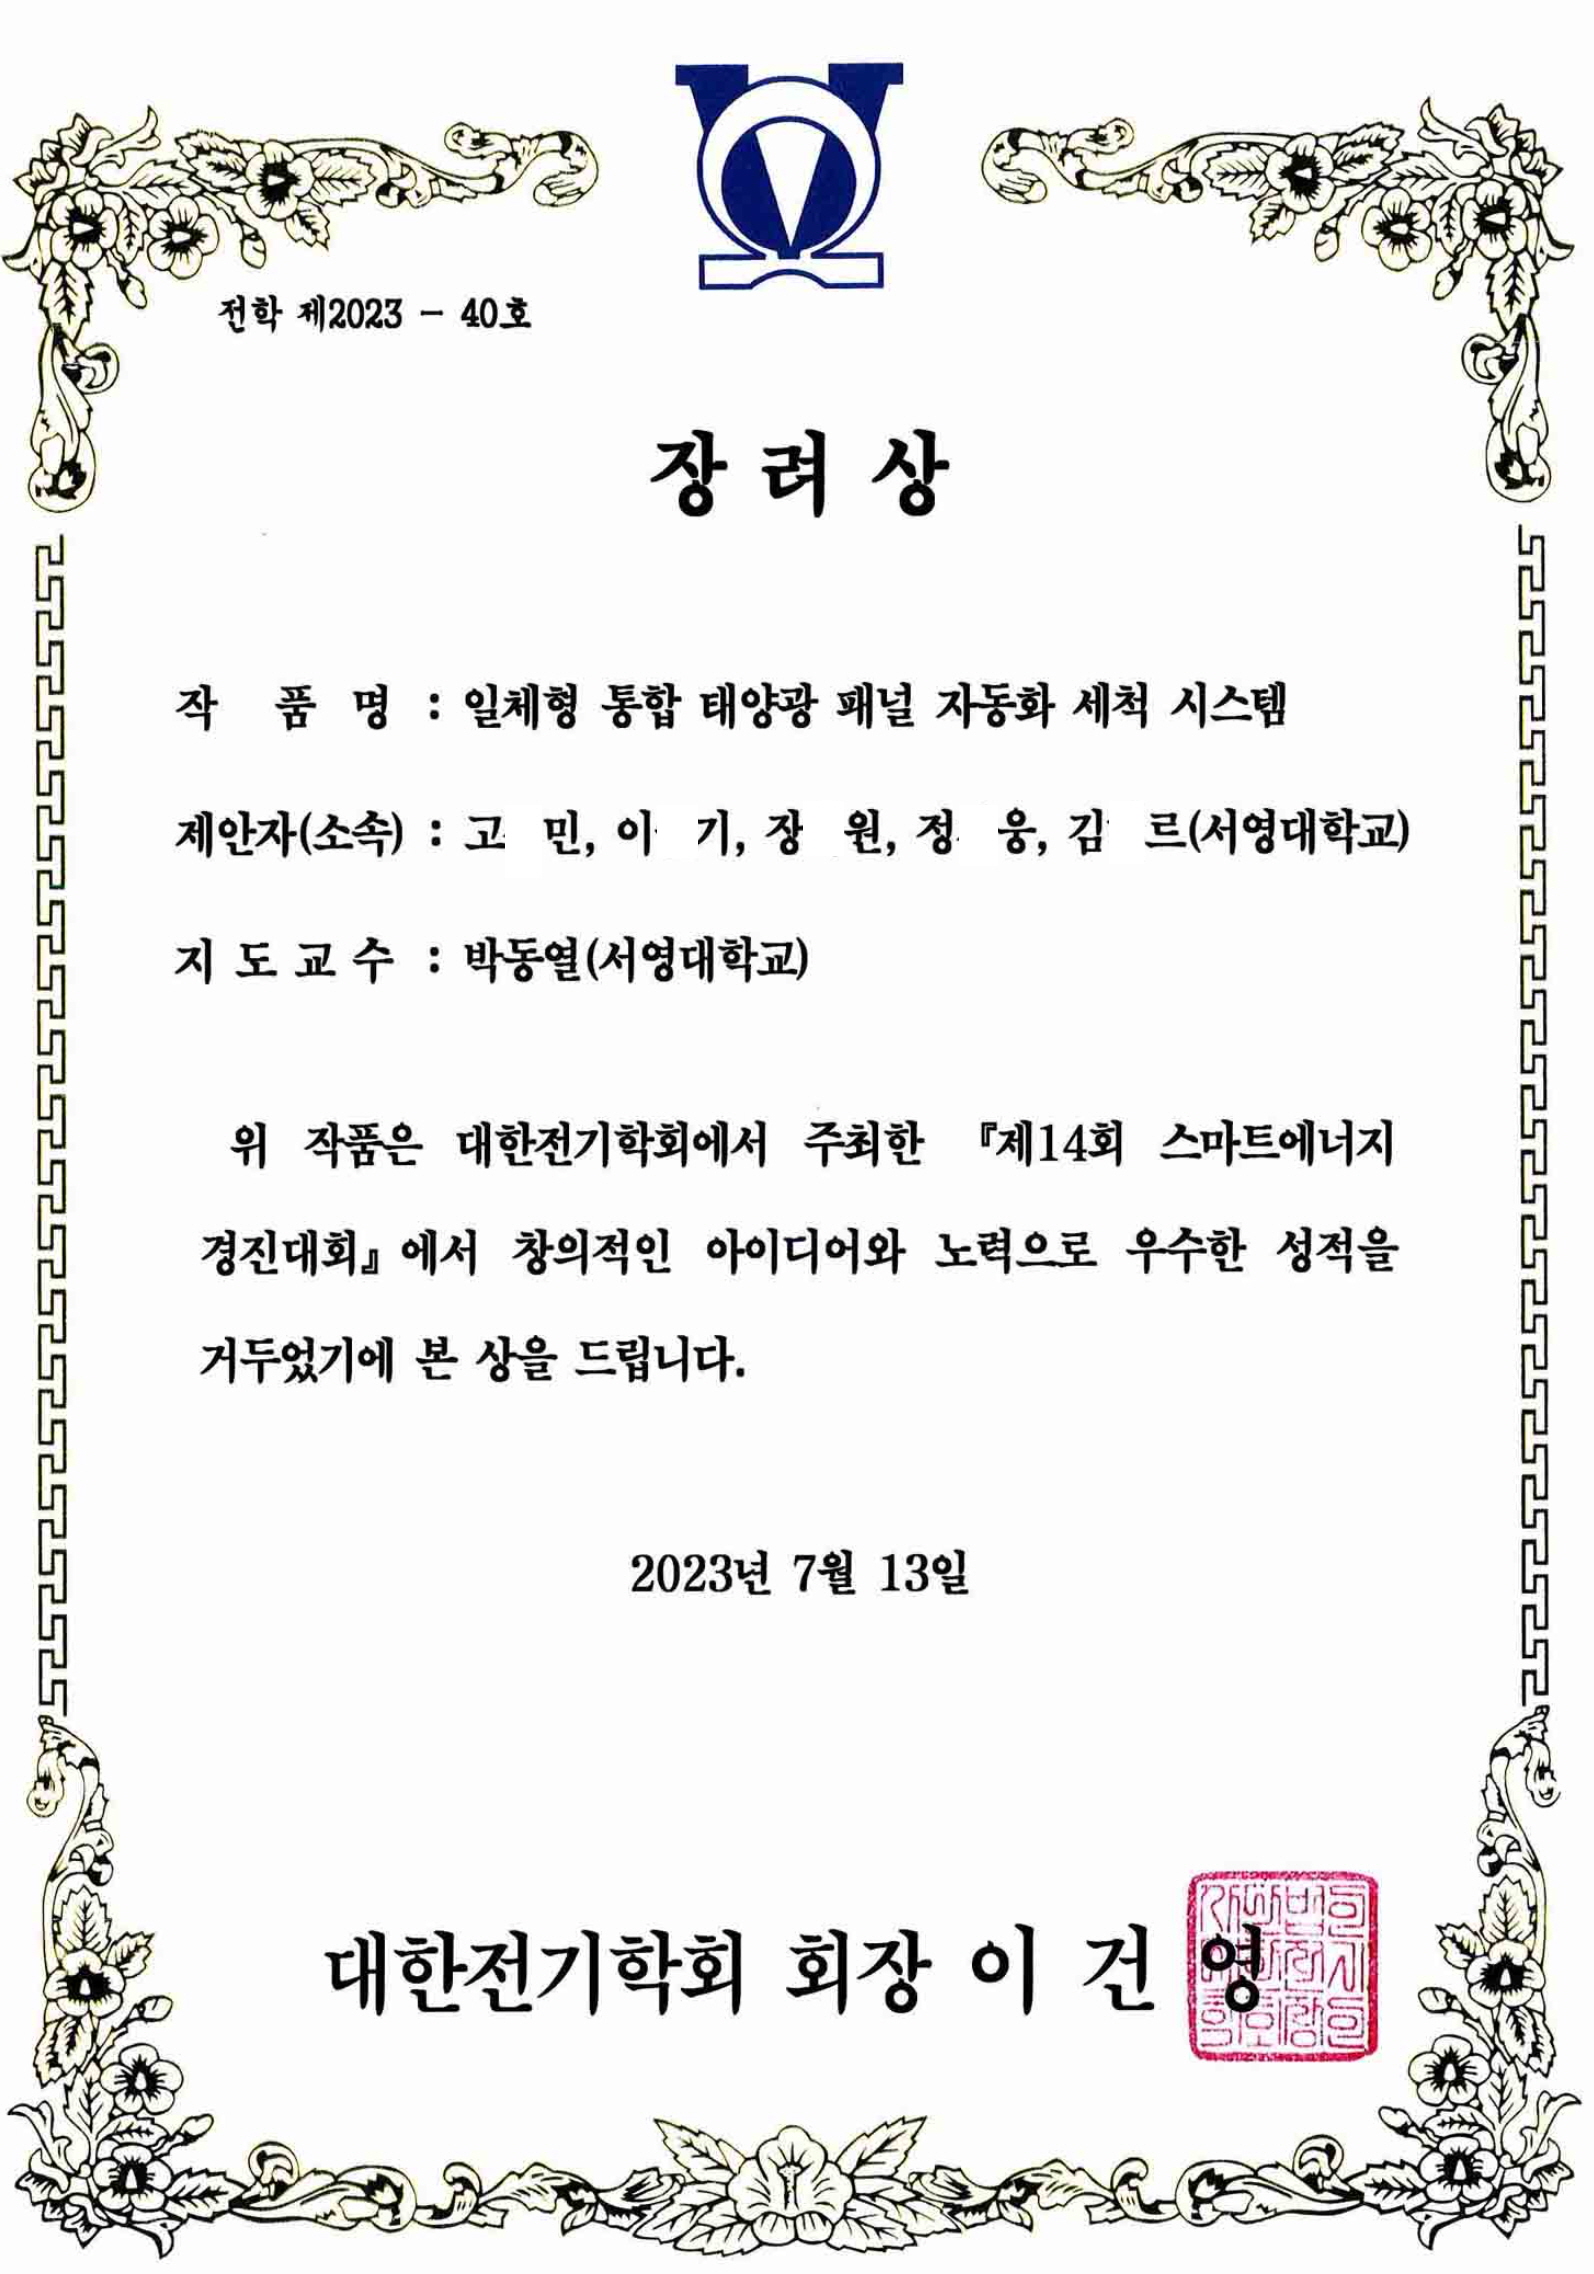 전학 제2023 - 40호
장 려 상
작 품 명 : 일체형 통합 태양광 패널 자동화 세척 시스템
제안자(소속) : 고 민, 이 기, 장 원, 정 웅, 김 르(서영대학교)
지 도 교 수 : 박동열(서영대학교)
위 작품은 대한전기학회에서 주최한 『제14회 스마트에너지
경진대회』에서 창의적인 아이디어와 노력으로 우수한 성적을
거두었기에 본 상을 드립니다.
2023년 7월 13일
대한전기학회 회장 이 건 영